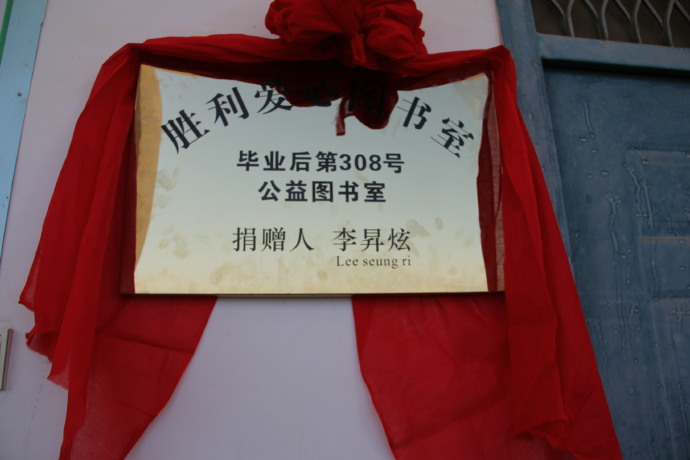 胜利爱心图书室
毕业后第308号
公益图书室
捐赠人 李昇炫
Lee seung ri